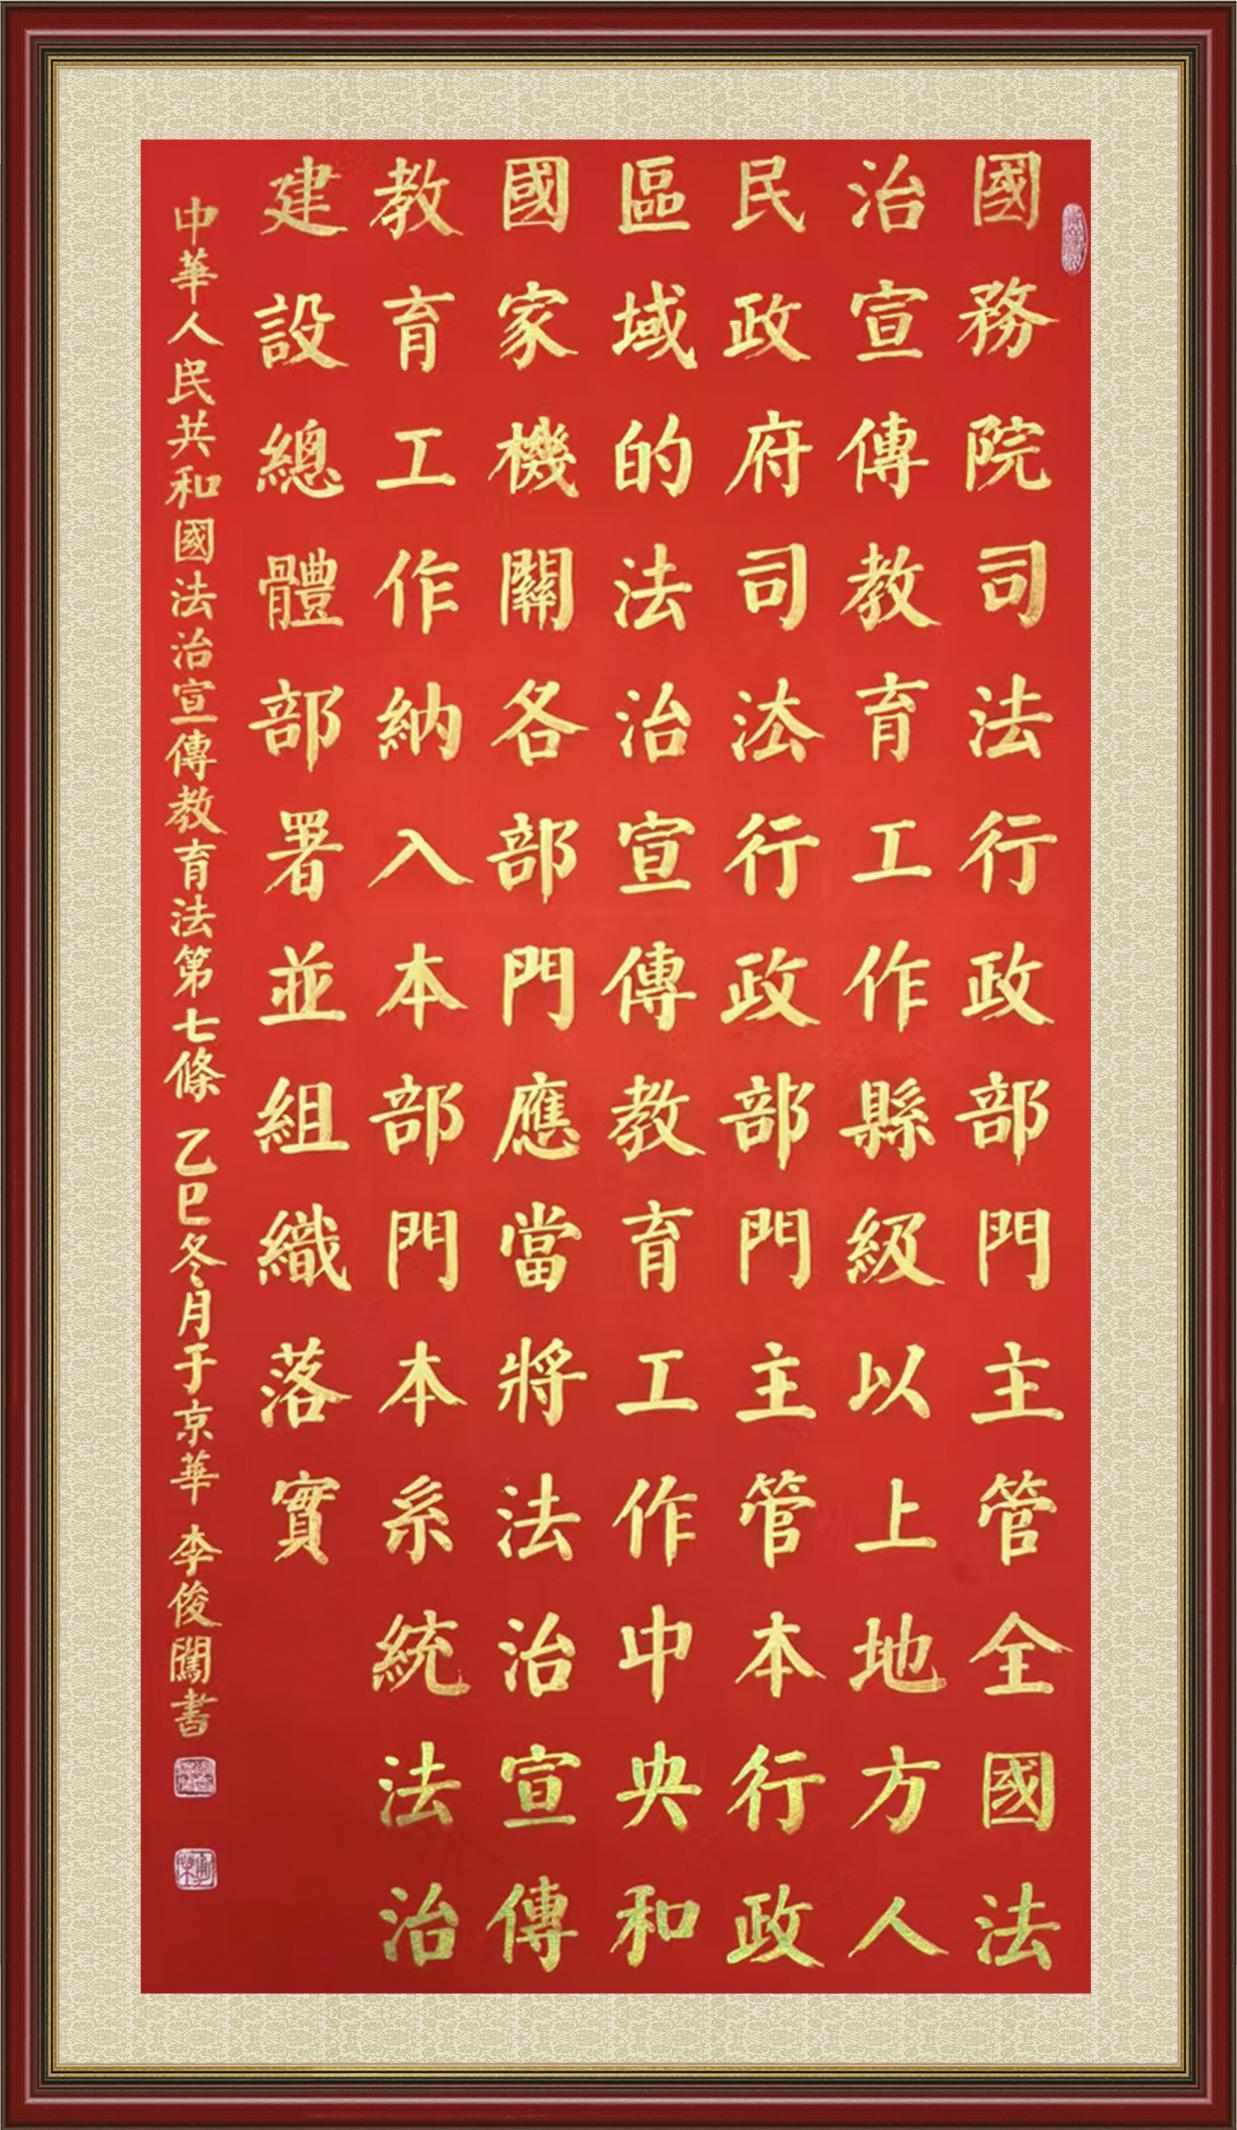 國務院司法行政部門主管全國法
治宣傳教育工作縣級以上地方人
民政府司法行政部門主管本行政
區域的法治宣傳教育工作中央和
國家機關各部門應當將法治宣傳
教育工作納入本部門本系統法治
建設總體部署並組織落實
中華人民共和國法治宣傳教育法第七條 乙巳冬月于京華 李俊闖書